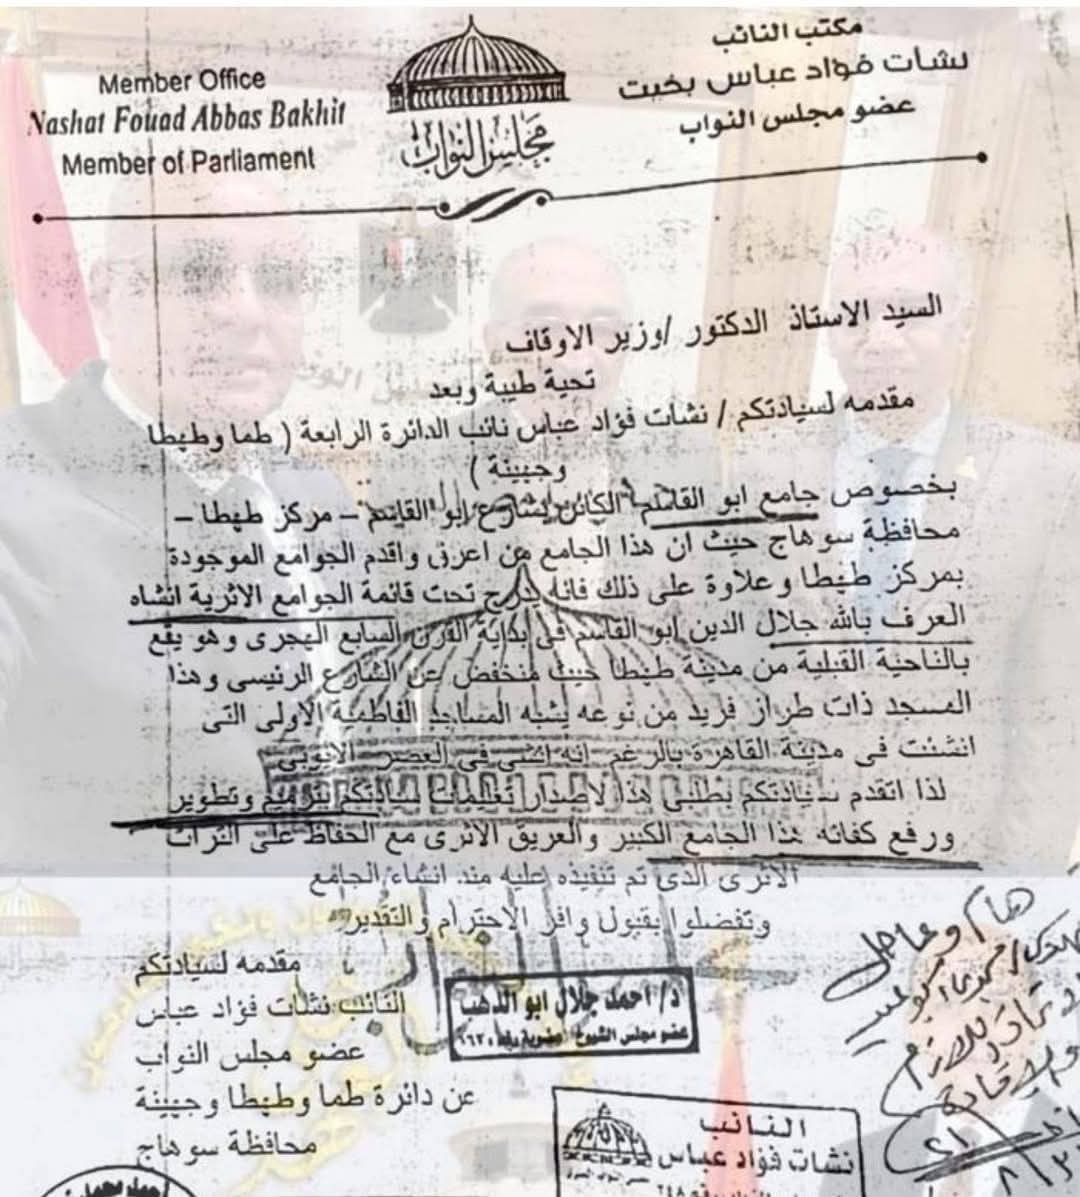 مكتب النائب
نشأت فؤاد عباس بخيت
عضو مجلس النواب
Member Office
Nashat Fouad Abbas Bakhit
Member of Parliament
مجلس النواب
السيد الاستاذ الدكتور /وزير الاوقاف
تحية طيبة وبعد
مقدمه لسيادتكم / نشأت فؤاد عباس نائب الدائرة الرابعة ( طما وطهطا
وجهينة )
بخصوص جامع ابو القاسم الكائن بشارع ابو القاسم – مركز طهطا –
محافظة سوهاج حيث ان هذا الجامع من اعرق واقدم الجوامع الموجودة
بمركز طهطا وعلاوة على ذلك فانه يدرج تحت قائمة الجوامع الاثرية انشاه
العرف بالله جلال الدين ابو القاسم فى بداية القرن السابع الهجرى وهو يقع
بالناحية القبلية من مدينة طهطا حيث منخفض عن الشارع الرئيسى وهذا
المسجد ذات طراز فريد من نوعه يشبه المساجد الفاطمية الاولى التى
انشئت فى مدينة القاهرة بالرغم انه انشى فى العصر الايوبى
لذا اتقدم سيادتكم بطلبى هذا لاصدار تعليمات سيادتكم ترميم وتطوير
ورفع كفائه هذا الجامع الكبير والعريق الاثرى مع الحفاظ على التراث
الاثرى الذى تم تنفيذه عليه منذ انشاء الجامع
وتفضلوا بقبول وافر الاحترام والتقدير
مقدمه لسيادتكم
النائب نشأت فؤاد عباس
عضو مجلس النواب
عن دائرة طما وطهطا وجهينة
محافظة سوهاج
د/ احمد جلال ابو الدهب
عضو مجلس الشيوخ
النائب
نشأت فؤاد عباس
هام وعاجل